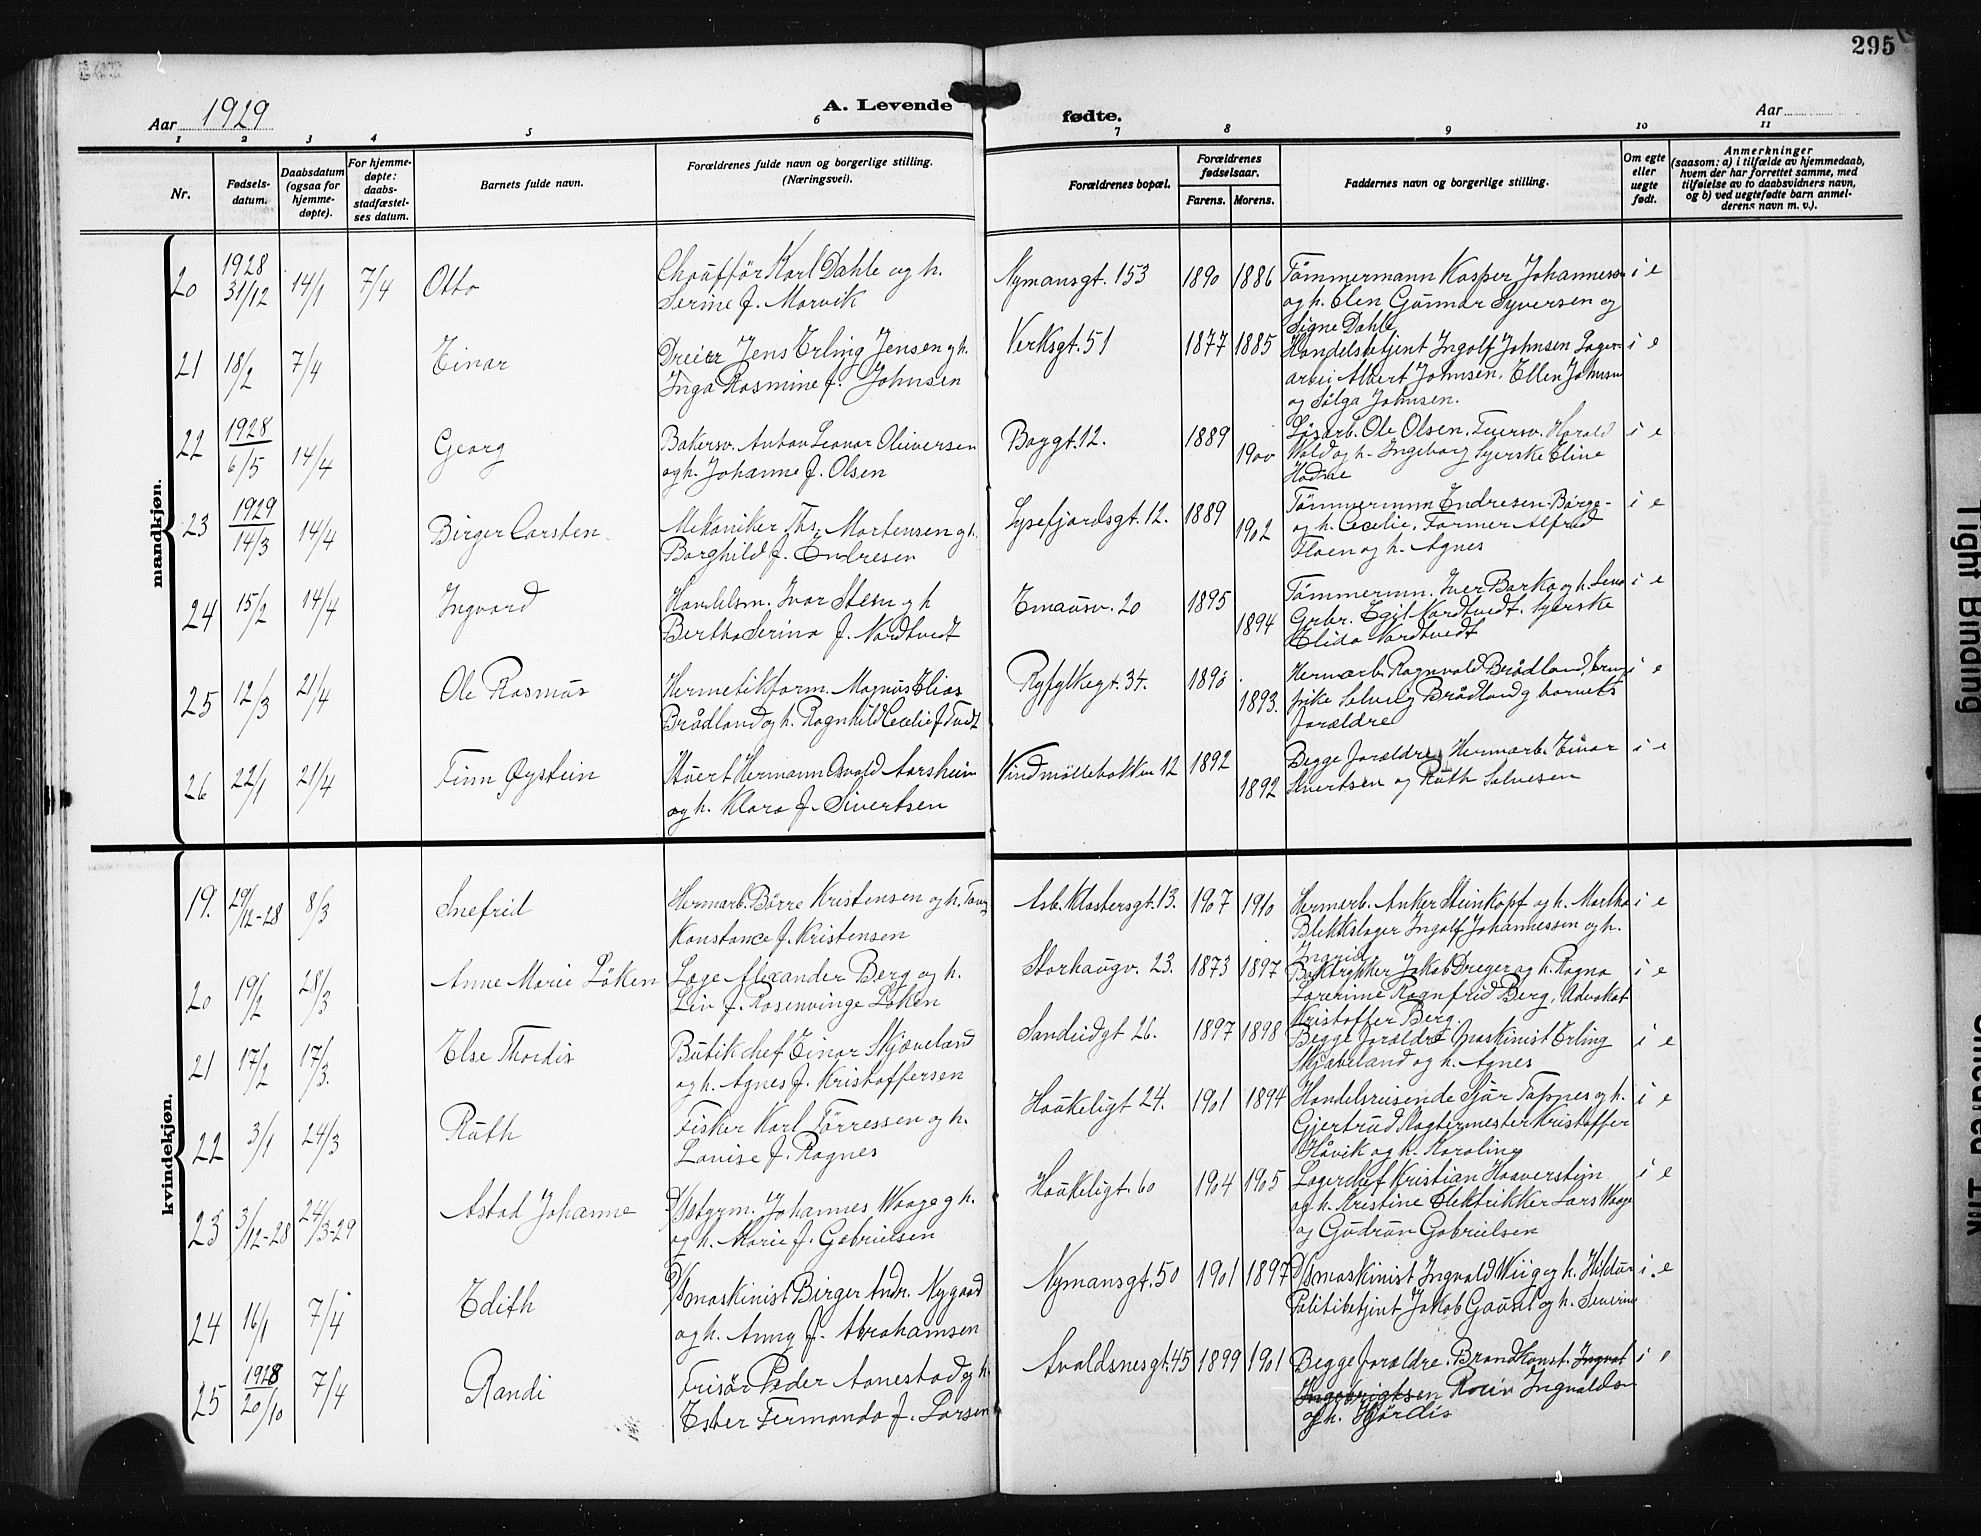 295
Aar 1929
A. Levende
fødte.
Aar
1 2 3 4 5 6 7 8 9 10 11
Nr.
Fødsels-
datum.
Daabsdatum
(ogsaa for
hjemme-
døpte).
For hjemme-
døpte:
daabs-
stadfæstel-
ses datum.
Barnets fulde navn.
Forældrenes fulde navn og borgerlige stilling.
(Næringsvei).
Forældrenes bopæl.
Forældrenes
fødselsaar.
Farens. Morens.
Faddernes navn og borgerlige stilling.
Om egte
eller
uegte
født.
Anmerkninger
(saasom: a) i tilfælde av hjemmedaab,
hvem der har forrettet samme, med
tilføielse av to daabsvidners navn,
og b) ved uegtefødte barn anmel-
derens navn m. v.).
mandkjøn.
20 1928 31/12 14/1 7/4 Otto
Chauffør Karl Dahle og h.
Serine f. Morvik
Nymansgt. 153 1890 1886
Tømmermann Kasper Johannesen
og h. Elen Gunnar Syversen og
Signe Dahle
i e
21 18/2 7/4 Einar
Dreier Jens Erling Jensen og h.
Inga Rasmine f. Johnsen
Verksgt. 51 1877 1885
Handelsbetjent Ingolf Johnsen Lager-
arbei Albert Johnsen. Ellen Johnsen
og Sølga Johnsen.
i e
22 1928 6/5 14/4 Georg
Bakersv. Anton Leonar Oliversen
og h. Johanne f. Olsen
Boygt. 12. 1889 1900
Løsarb. Ole Olsen. Harald
Wold og h. Ingeborg Syerske Eline
i e
23 1929 14/3 14/4 Birger Carsten
Mekaniker Ths. Mortensen og h.
Borghild f. Endresen
Lysefjordsgt. 12. 1889 1902
Tømmermm Endresen Børge-
og h. Cecelie. Former Alfred
Floen og h. Agnes
i e
24 15/2 14/4 Ingvard
Handelsm. Ivar Steen og h
Bertha Serina f. Nordtvedt
Emausv. 20 1895 1894
Tømmermm. Iver Barka og h. Lena
Grbr. Egil Nordtvedt. Syerske
Elida Nordtvedt
i e
25 12/3 21/4 Ole Rasmus
Hermetikform. Magnus Elias
Brådland og h. Ragnhild Cecelie f. Tvedt
Ryfylkegt. 34. 1890 1893.
Hermarb. Ragnvald Brådland,
frike Solveig Brådland og barnets
forældre
i e
26 22/1 21/4 Finn Øystein
Stuert Hermann Osvald Aarsheim
og h. Klara f. Sivertsen
Vindmøllebakken 12 1892 1892
Begge forældre, Hermarb. Einar
Sivertsen og Ruth Salvesen
i e
kvindekjøn.
19. 29/12-28 8/3 Snefrid
Hermarb. Børre Kristensen og h.
Konstance f. Kristensen
Asb. Klostersgt. 13. 1907 1910
Hermarb. Anker Steinkopf og h. Martha
Blikkslager Ingolf Johannessen og h.
Ingrid
i e
20 19/2 28/3 Anne Marie Løken
Læge Alexander Berg og h.
Liv f. Rosenvinge Løken
Storhaugv. 23. 1873 1897
Boktrykker Jakob Dreyer og h. Ragna
Lærerinne Ragnfrid Berg, Advokat
Kristoffer Berg.
i e
21 17/2 17/3. Else Thordis
Butikchef Einar Skjæveland
og h. Agnes f. Kristoffersen
Sandeidgt 26. 1897 1898
Begge forældre Maskinist Erling
Skjæveland og h. Agnes
i e
22 3/1 24/3 Ruth
Fisker Karl Tørressen og h.
Lovise f. Ragnes
Haukeligt 24. 1901 1894
Handelsreisende Sjur Tapnes og h.
Gjertrud Slagtermester Kristoffer
Håvik og h. Karoline
i e
23 3/12-28 24/3-29 Astad Johanne
D/Sstyrm. Johannes Waage og h.
og h. Marie f. Gabrielsen
Haukeligt. 60 1904 1905
Lagerchef Kristian Haaversteijn
og h. Kristine Elektrikker Lars Waage
og Gudrun Gabrielsen
i e
24 16/1 7/4 Edith
D/Smaskinist Birger Andr. Nygaard
og h. Anny f. Abrahamsen
Nymansgt. 50 1901 1897
D/Smaskinist Ingvald Wiig og h. Hildur
Politibetjent Jakob Gausel og h. Severine
i. e
25 1928 20/10 7/4 Randi
Frisør Peder Aanestad og h.
Ester Fermanda f. Larsen
Avaldsnesgt. 45 1899 1901
Begge forældre. Brandkonst. Ingvat
Ingebrigtsen Roiv Ingvaldsen
og h. Hjørdis
i e
Tight Binding